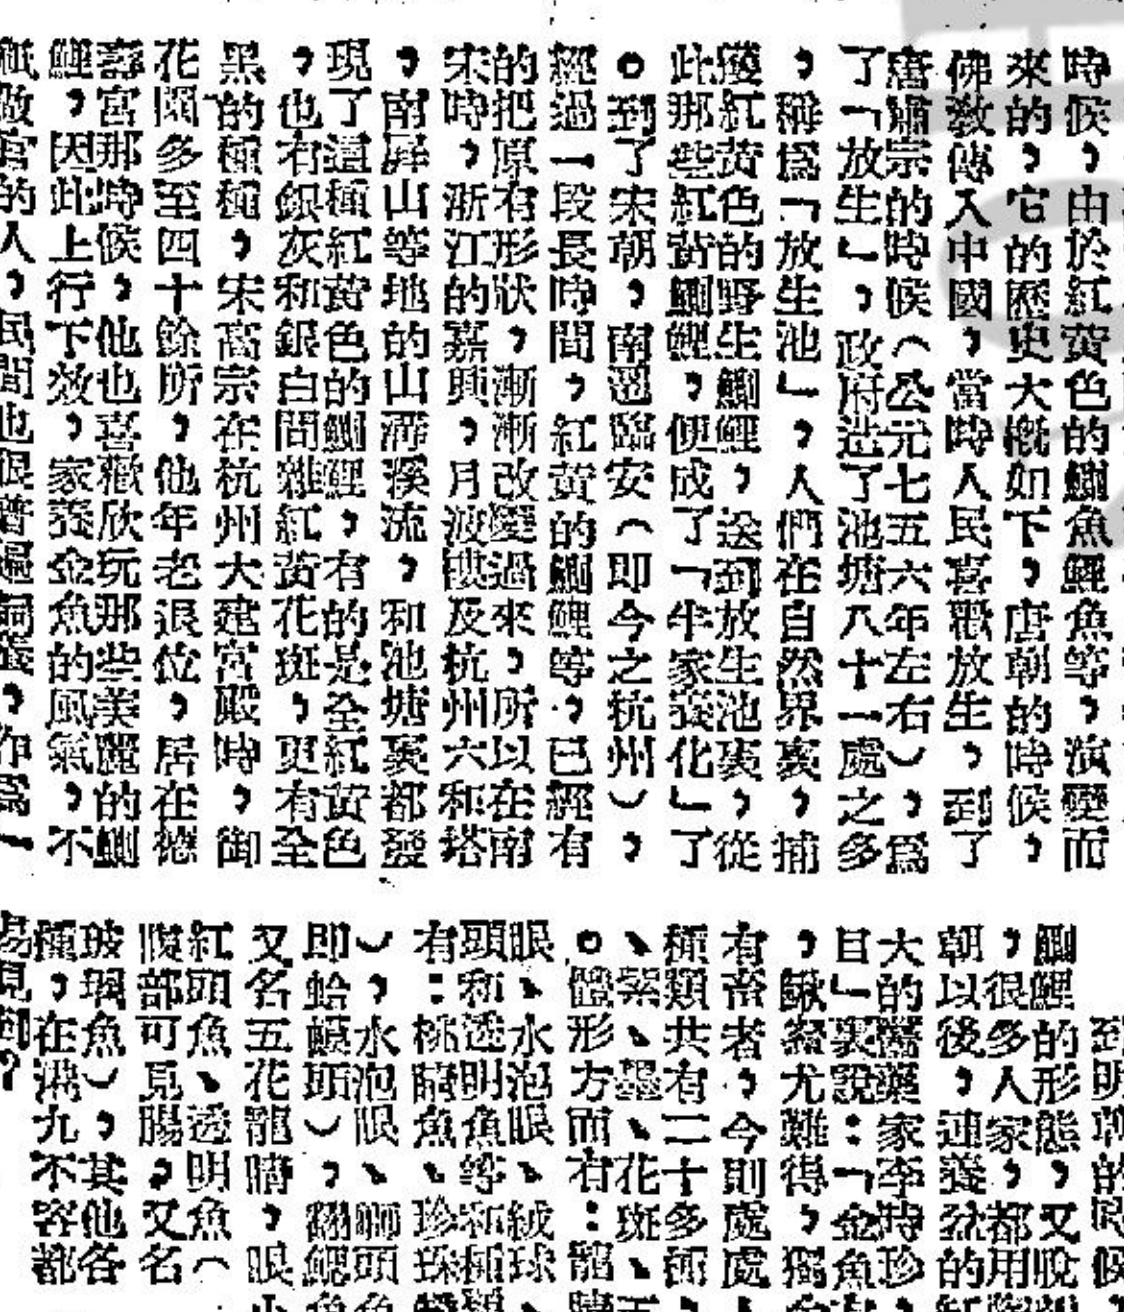 時候，由於紅黃色的鯽魚鯉魚等，演變而
來的，它的歷史大概如下，唐朝的時候，
佛教傳入中國，當時人民喜歡放生，到了
唐肅宗的時候（公元七五六年左右），爲
了「放生」，政府造了池塘八十一處之多
，稱爲「放生池」，人們在自然界裏，捕
獲紅黃色的野生鯽鯉，送到放生池裏，從
此那些紅黃鯽鯉，便成了「半家養化」了
。到了宋朝，南遷臨安（即今之杭州），
經過一段長時間，紅黃的鯽鯉等，已經有
的把原有形狀，漸漸改變過來，所以在南
宋時，浙江的嘉興，月波樓及杭州六和塔
，南屏山等地的山澗溪流，和池塘裏都發
現了這種紅黃色的鯽鯉，有的是全紅黃色
，也有銀灰和銀白間雜紅黃花斑，更有全
黑的種種，宋高宗在杭州大建宮殿時，御
花園多至四十餘所，他年老退位，居在德
壽宮那時候，他也喜歡欣玩那些美麗的鯽
鯉，因此上行下效，家養金魚的風氣，不
祇做官的人，民間也很普遍飼養，作爲一
到明朝的時候
鯽鯉的形態，又脫
，很多人家，都用
朝以後，連養盆的
大的醫藥家李時珍
目」裏說：「金魚
，尤難得，獨
有畜者，今則處處
種類共有二十多種
、紫、墨、花斑、
。體形方面有：龍
眼、水泡眼、絨球
頭和透明魚等和種
有：魚、珍珠
），水泡眼、獅頭
即蛤蟆頭），翻鰓
又名五花龍睛，眼
紅頭魚、透明魚（
腹部可見腸，又名
玻璃魚），其他各
種，在港九不容都
易見到？